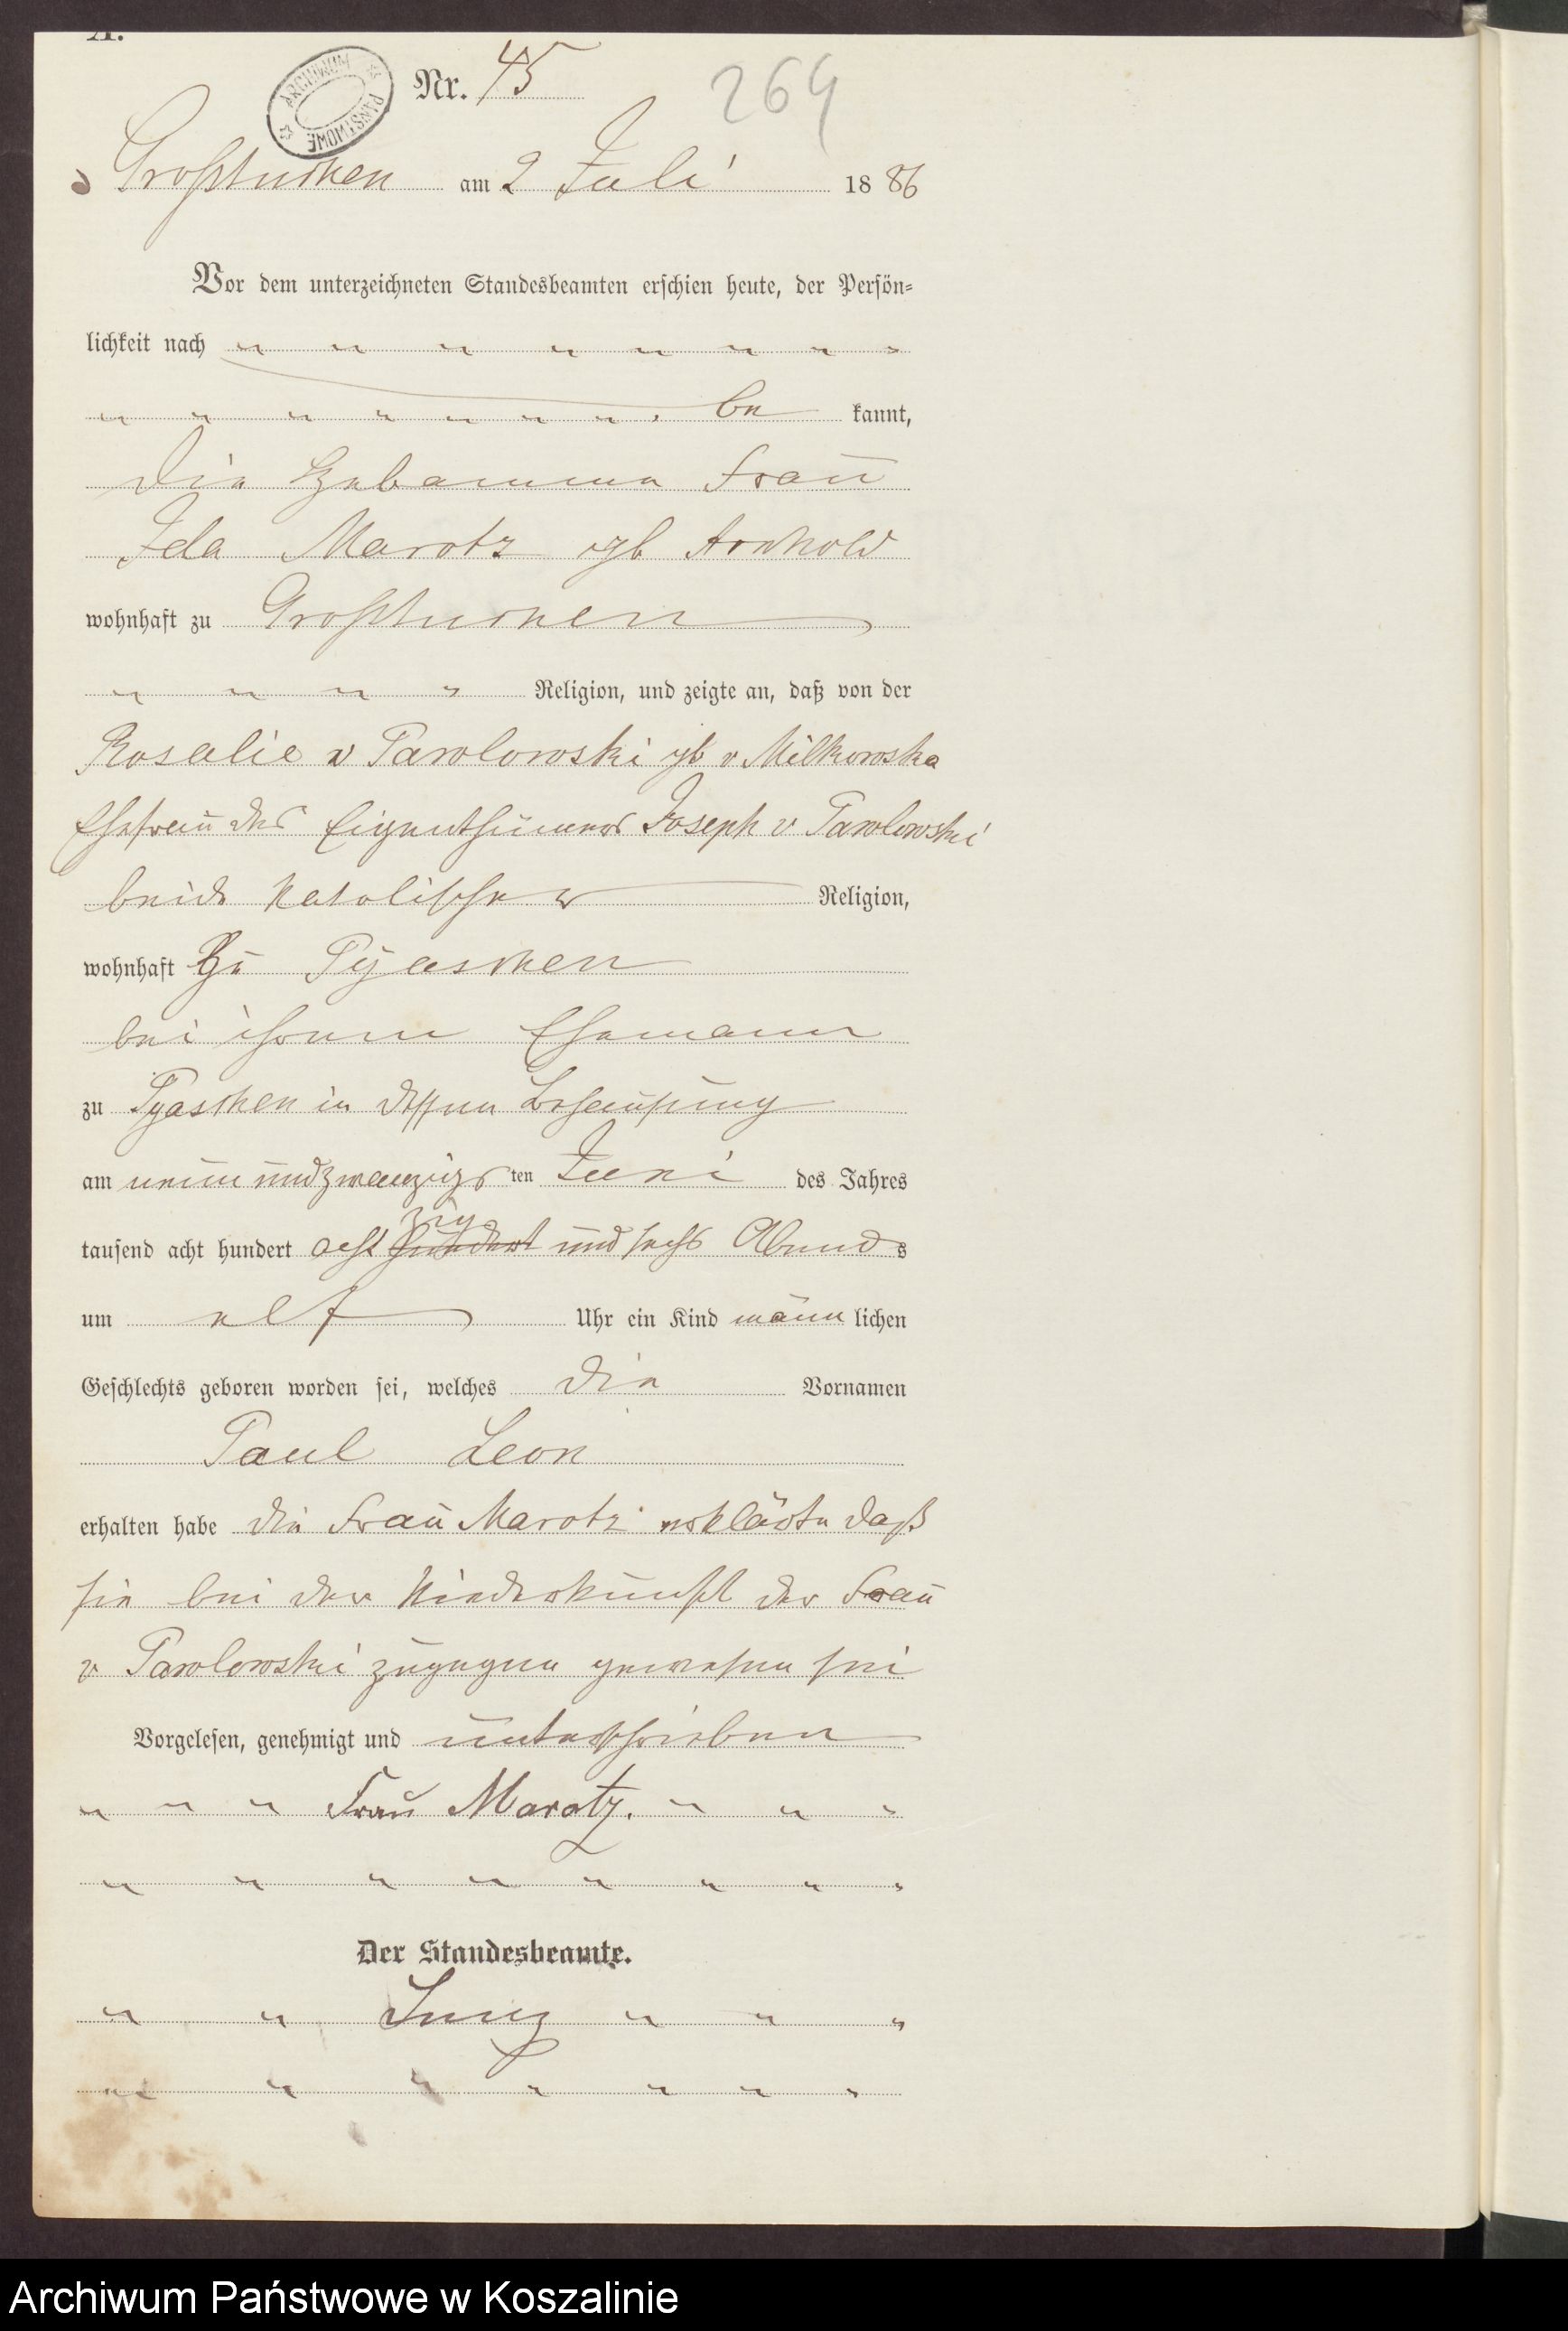 A.
ARCHIWUM PAŃSTWOWE
Nr. 45
264
Großtuchen am 2 Juli 1886
Vor dem unterzeichneten Standesbeamten erschien heute, der Persön-
lichkeit nach
be kannt,
die Hebamme Frau
Ida Marotz geb Arnhold
wohnhaft zu Großtuchen
Religion, und zeigte an, daß von der
Rosalie v Pawlowski gb v Milkowska
Ehefrau des Eigenthümers Joseph v Pawlowski
beide katolischer Religion,
wohnhaft zu Pyaschen
bei ihrem Ehemann
zu Pyaschen in dessen Behausung
am neun und zwanzigs ten Juni des Jahres
tausend acht hundert acht hundert zig und sechs Abends
um elf Uhr ein Kind männ lichen
Geschlechts geboren worden sei, welches die Vornamen
Paul Leon
erhalten habe die Frau Marotz erklärte daß
sie bei der Niederkunft der Frau
v Pawlowski zugegen gewesen sei
Vorgelesen, genehmigt und unterschrieben
Frau Marotz.
Der Standesbeamte.
Archiwum Państwowe w Koszalinie